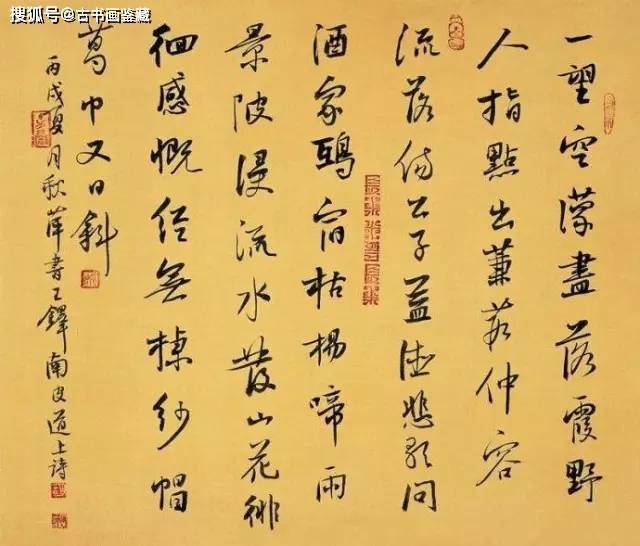 搜狐号@古书画鉴藏
一望空濛盡落霞野
人指點出蒹葭仲容
流落傷公子孟德悲歌問
酒家鵶宿枯楊啼雨
景陂漫流水發山花徘
徊感慨經無棣紗帽
葛巾又日斜
丙戌夏月秋萍書王鐸南皮道上詩